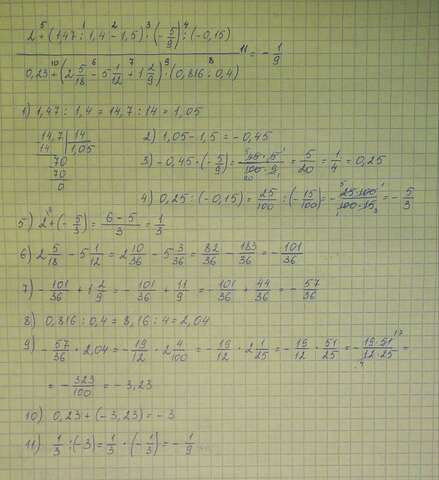 2 + (1,47 : 1,4 - 1,5) · (- 5/9) : (-0,15)
0,23 + (2 5/18 - 5 1/12 + 1 2/9) · (0,816 : 0,4) = - 1/9
1) 1,47 : 1,4 = 14,7 : 14 = 1,05
14,7 | 14
14 | 1,05
70
70
0
2) 1,05 - 1,5 = -0,45
3) -0,45 · (- 5/9) = 45 · 5 / 100 · 9 = 5/20 = 1/4 = 0,25
4) 0,25 : (-0,15) = 25/100 : (- 15/100) = - 25·100 / 100·15 = - 5/3
5) 2 + (- 5/3) = 6-5 / 3 = 1/3
6) 2 5/18 - 5 1/12 = 2 10/36 - 5 3/36 = 82/36 - 183/36 = - 101/36
7) - 101/36 + 1 2/9 = - 101/36 + 11/9 = - 101/36 + 44/36 = - 57/36
8) 0,816 : 0,4 = 8,16 : 4 = 2,04
9) - 57/36 · 2,04 = - 19/12 · 2 4/100 = - 19/12 · 2 1/25 = - 19/12 · 51/25 = - 19·51 / 12·25 =
= - 323/100 = -3,23
10) 0,23 + (-3,23) = -3
11) 1/3 : (-3) = 1/3 · (- 1/3) = - 1/9